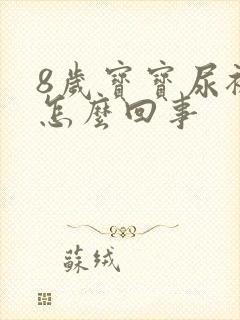 8歲寶寶尿褲
怎麼回事
蘇絨